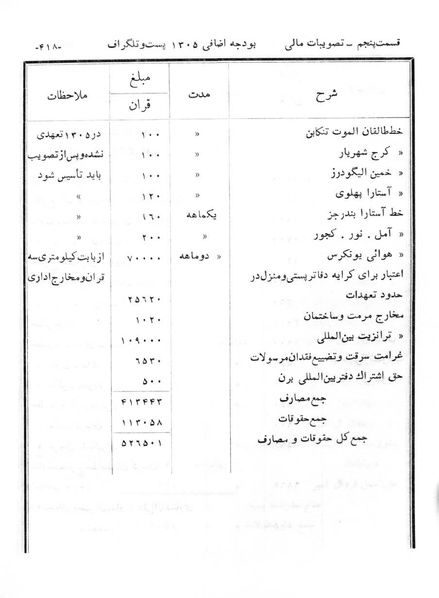 قسمت پنجم - تصویبات مالی بودجه اضافی ۱۳۰۵ پست و تلگراف -۴۱۸-
شرح مدت مبلغ قران ملاحظات
خط طالقان الموت تنکابن » ۱۰۰ در ۱۳۰۵ تعهدی
» کرج شهریار » ۱۰۰ نشده و پس از تصویب
» خمین الیگودرز » ۱۰۰ باید تأسیس شود
» آستارا پهلوی » ۱۲۰ »
خط آستارا بندرجز یکماهه ۱۶۰ »
» آمل . نور . کجور » ۲۰۰ »
» هوائی یونکرس » دوماهه ۷۰۰۰۰ از بابت کیلومتری سه
اعتبار برای کرایه دفاتر پستی و منزل در قران و مخارج اداری
حدود تعهدات ۲۵۶۲۰
مخارج مرمت و ساختمان ۱۰۲۰
» ترانزیت بین‌المللی ۱۰۹۰۰۰
غرامت سرقت و تضییع فقدان مرسولات ۶۵۳۰
حق اشتراك دفتر بین‌المللی برن ۵۰۰
جمع مصارف ۴۱۳۴۴۳
جمع حقوقات ۱۱۳۰۵۸
جمع کل حقوقات و مصارف ۵۲۶۵۰۱